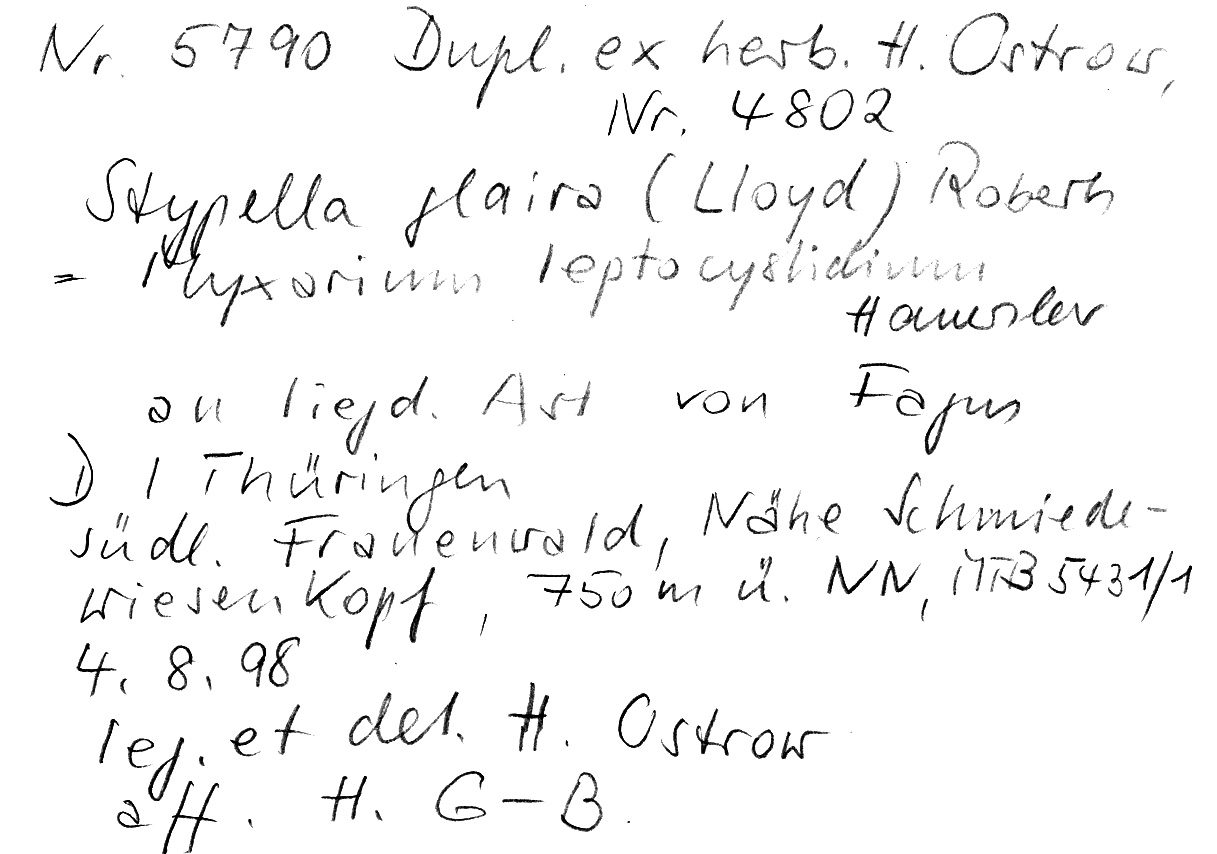 Nr. 5790 Dupl. ex herb. H. Ostrow,
Nr. 4802
Stypella glaira (Lloyd) Roberts
= Myxarium leptocystidium
Hauerslev
an liegd. Ast von Fagus
D / Thüringen
südl. Frauenwald, Nähe Schmiede-
wiesenkopf, 750 m ü. NN, MTB 5431/1
4. 8. 98
leg. et det. H. Ostrow
aff. H. G-B.